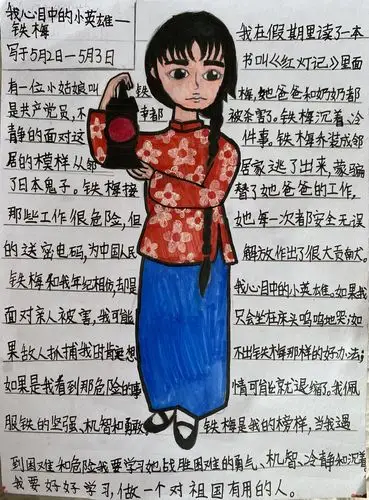 我心目中的小英雄—
铁梅
写于5月2日—5月3日
我在假期里读了一本
书叫《红灯记》里面
有一位小姑娘叫铁梅,她爸爸和奶奶都
是共产党员,不幸都被杀害了。铁梅沉着、冷
静的面对这件事。铁梅办装成邻
居的模样从邻居家逃了出来,蒙骗
了日本鬼子。铁梅接替了她爸爸的工作,
那些工作很危险,但她每一次都安无误
的送密电码,为中国人民解放作出了很大贡献。
铁梅和我年纪相仿,却是我心目中的小英雄。如果我
面对亲人被害,我可能只会坐在床头呜呜地哭泣如
果敌人抓捕我时我是想不出铁梅那样的好办法;
如果是我看到那危险的事情可能就退缩了。我佩
服铁的坚强、机智和勇敢,铁梅是我的榜样,当我遇
到困难和危险我要学习她战胜困难的勇气、机智、冷静和沉着
我要好好学习,做一个对祖国有用的人。